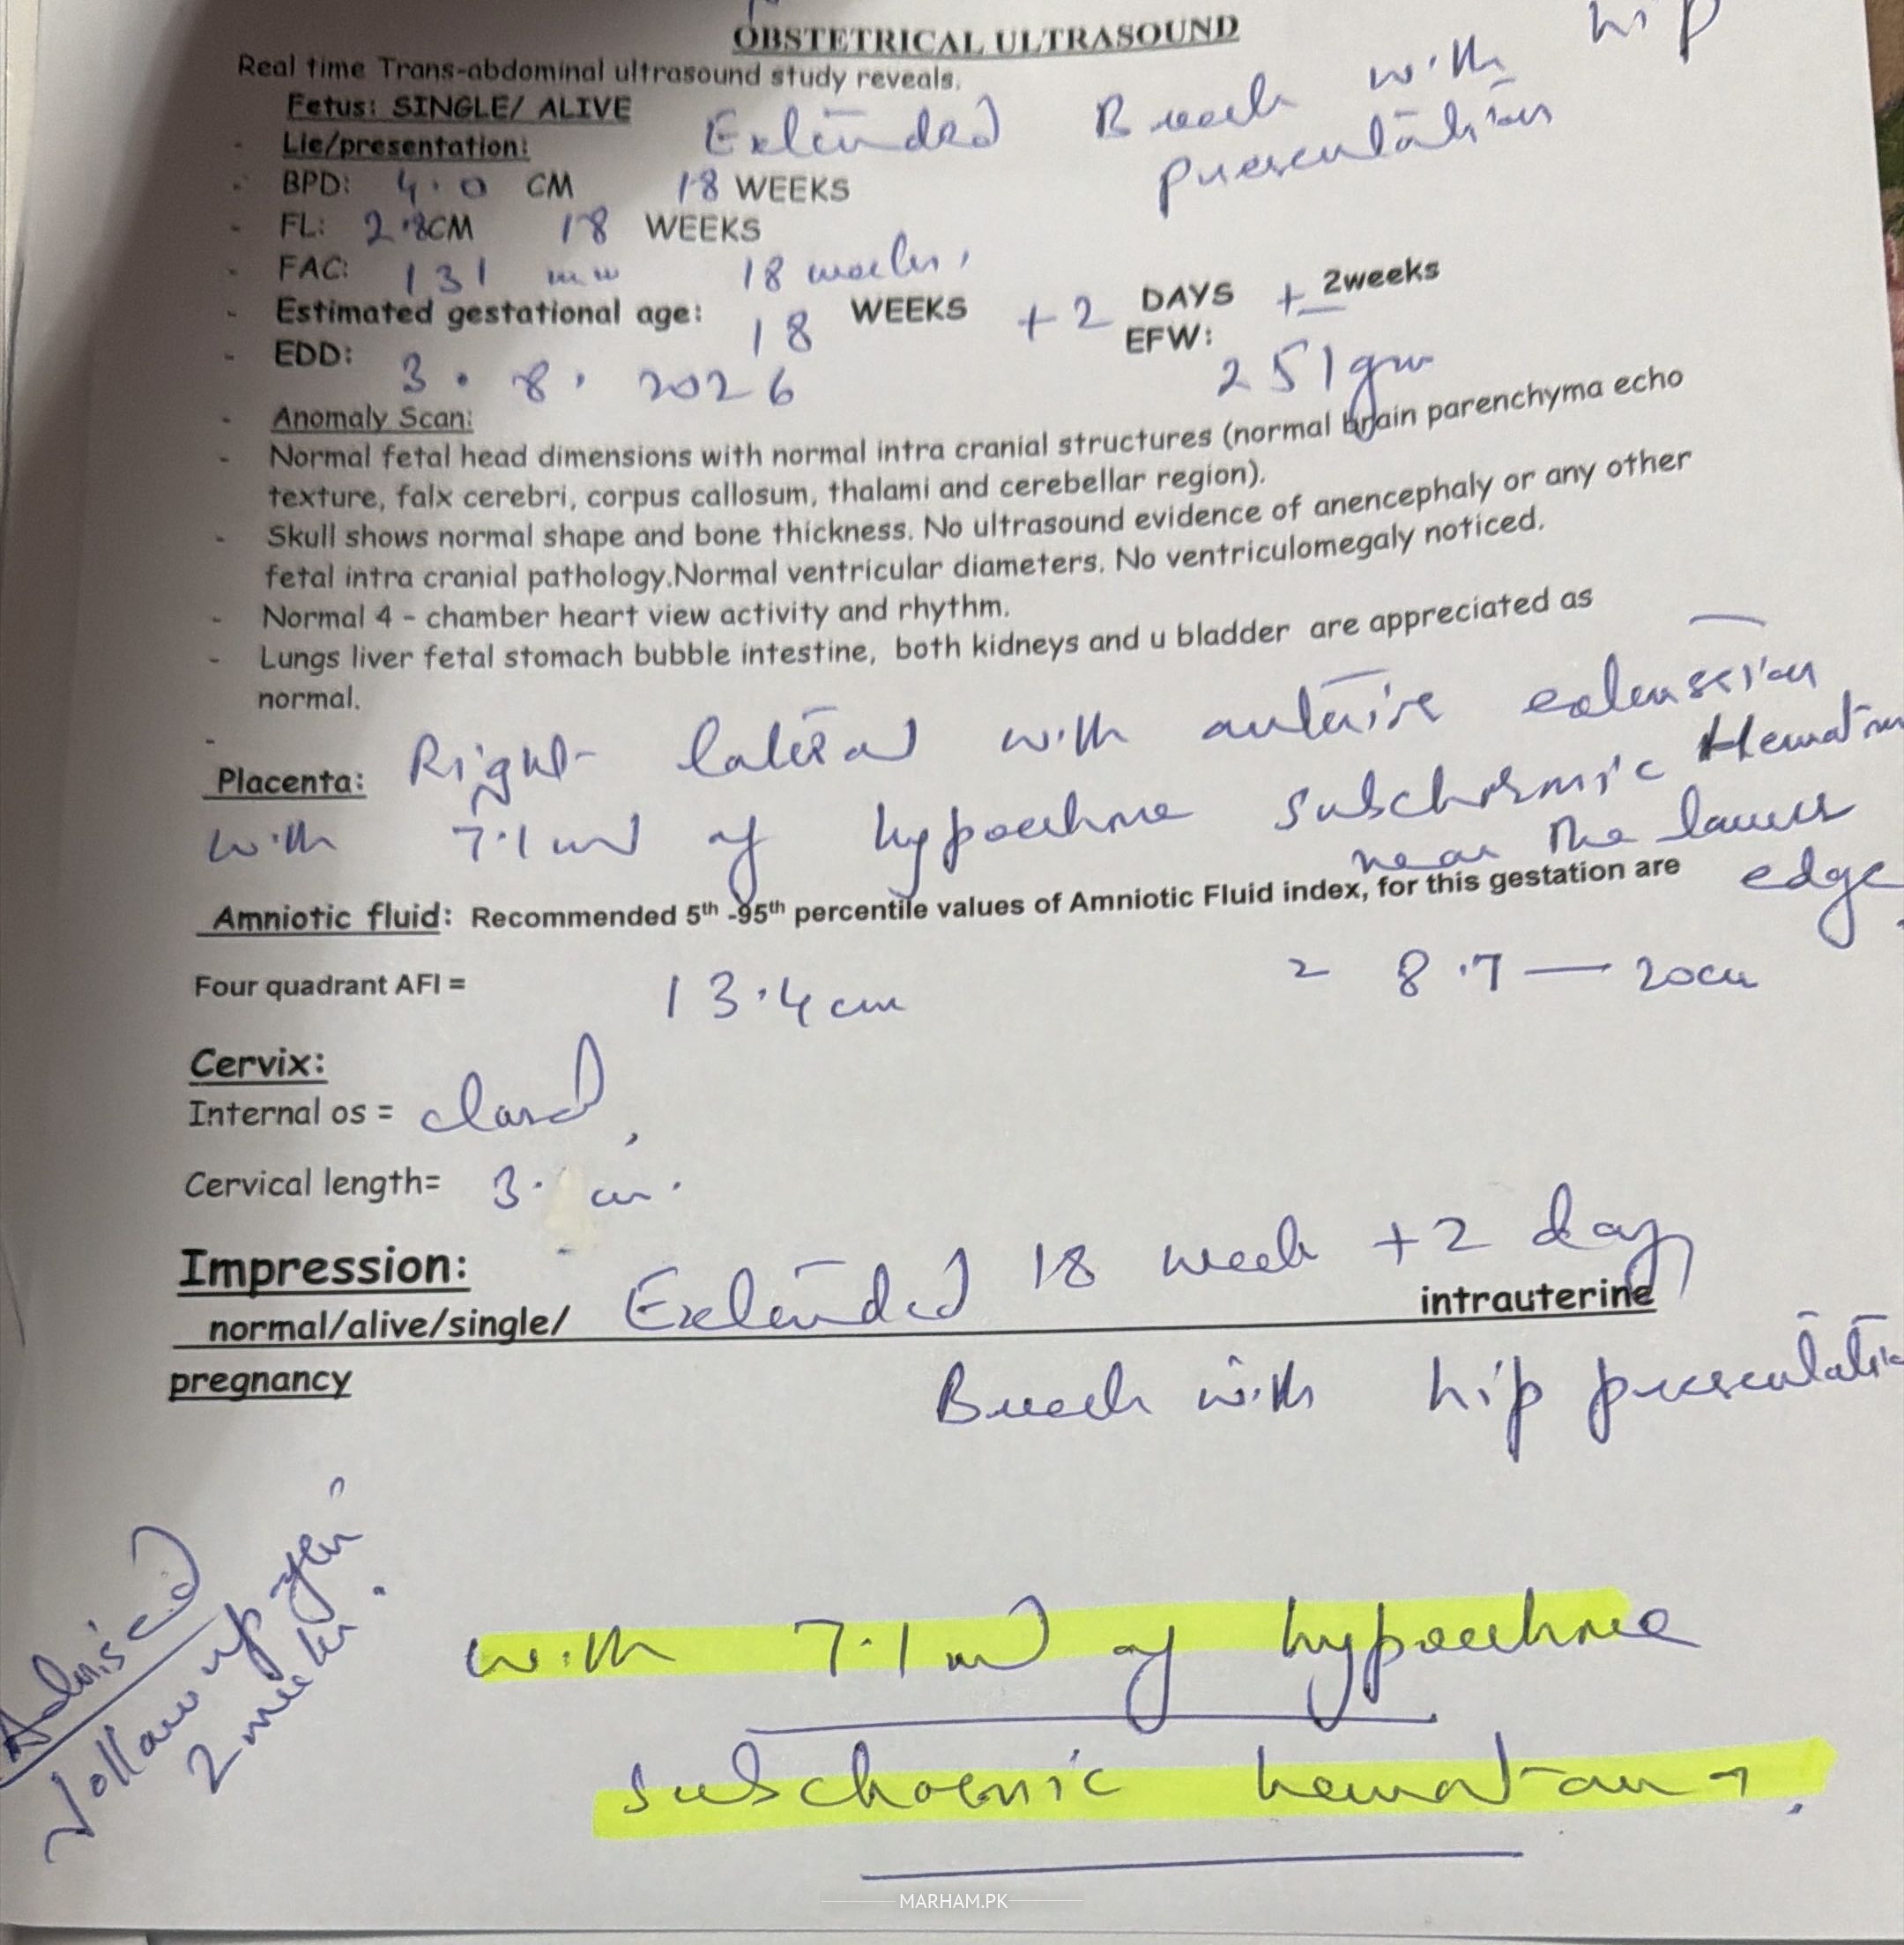 OBSTETRICAL ULTRASOUND
Real time Trans-abdominal ultrasound study reveals.
Fetus: SINGLE/ ALIVE
- Lie/presentation: Extended Breech with hip presentation
- BPD: 4.0 CM 18 WEEKS
- FL: 2.8CM 18 WEEKS
- FAC: 131 mm 18 weeks,
- Estimated gestational age: 18 WEEKS +2 DAYS ± 2weeks
- EDD: 3.8.2026 EFW: 251gm
- Anomaly Scan:
- Normal fetal head dimensions with normal intra cranial structures (normal brain parenchyma echo
texture, falx cerebri, corpus callosum, thalami and cerebellar region).
- Skull shows normal shape and bone thickness. No ultrasound evidence of anencephaly or any other
fetal intra cranial pathology.Normal ventricular diameters. No ventriculomegaly noticed.
- Normal 4 - chamber heart view activity and rhythm.
- Lungs liver fetal stomach bubble intestine, both kidneys and u bladder are appreciated as
normal.
-
Placenta: Right lateral with anterior extension
with 7.1 ml of hypoechoic subchorionic Hematoma
near the lower edge.
Amniotic fluid: Recommended 5th -95th percentile values of Amniotic Fluid index, for this gestation are
= 8.7 — 20cm
Four quadrant AFI = 13.4cm
Cervix:
Internal os = closed,
Cervical length= 3. cm.
Impression:
normal/alive/single/ Extended 18 week +2 day intrauterine
pregnancy Breech with hip presentation
with 7.1 ml of hypoechoic
subchorionic hematoma.
Advised
follow up
2 weeks.
MARHAM.PK